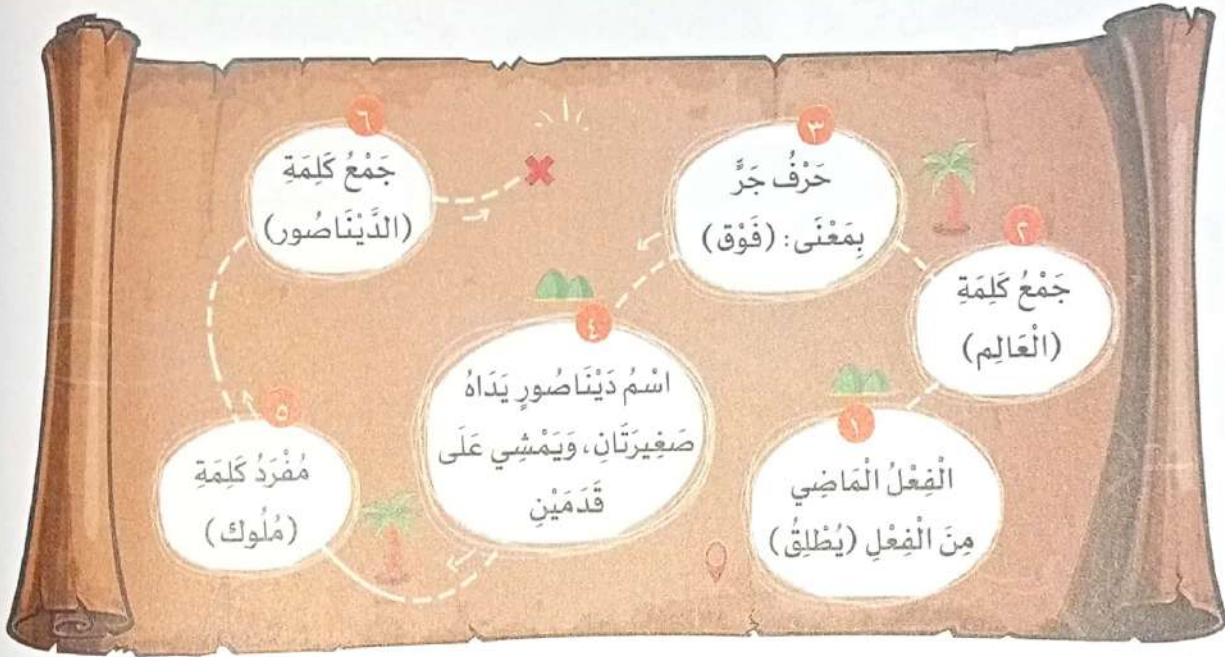 ١
الْفِعْلُ الْمَاضِي
مِنَ الْفِعْلِ (يُطْلِقُ)
٢
جَمْعُ كَلِمَةِ
(الْعَالِم)
٣
حَرْفُ جَرٍّ
بِمَعْنَى: (فَوْق)
٤
اسْمُ دَيْنَاصُورٍ يَدَاهُ
صَغِيرَتَانِ، وَيَمْشِي عَلَى
قَدَمَيْنِ
٥
مُفْرَدُ كَلِمَةِ
(مُلُوك)
٦
جَمْعُ كَلِمَةِ
(الدَّيْنَاصُور)